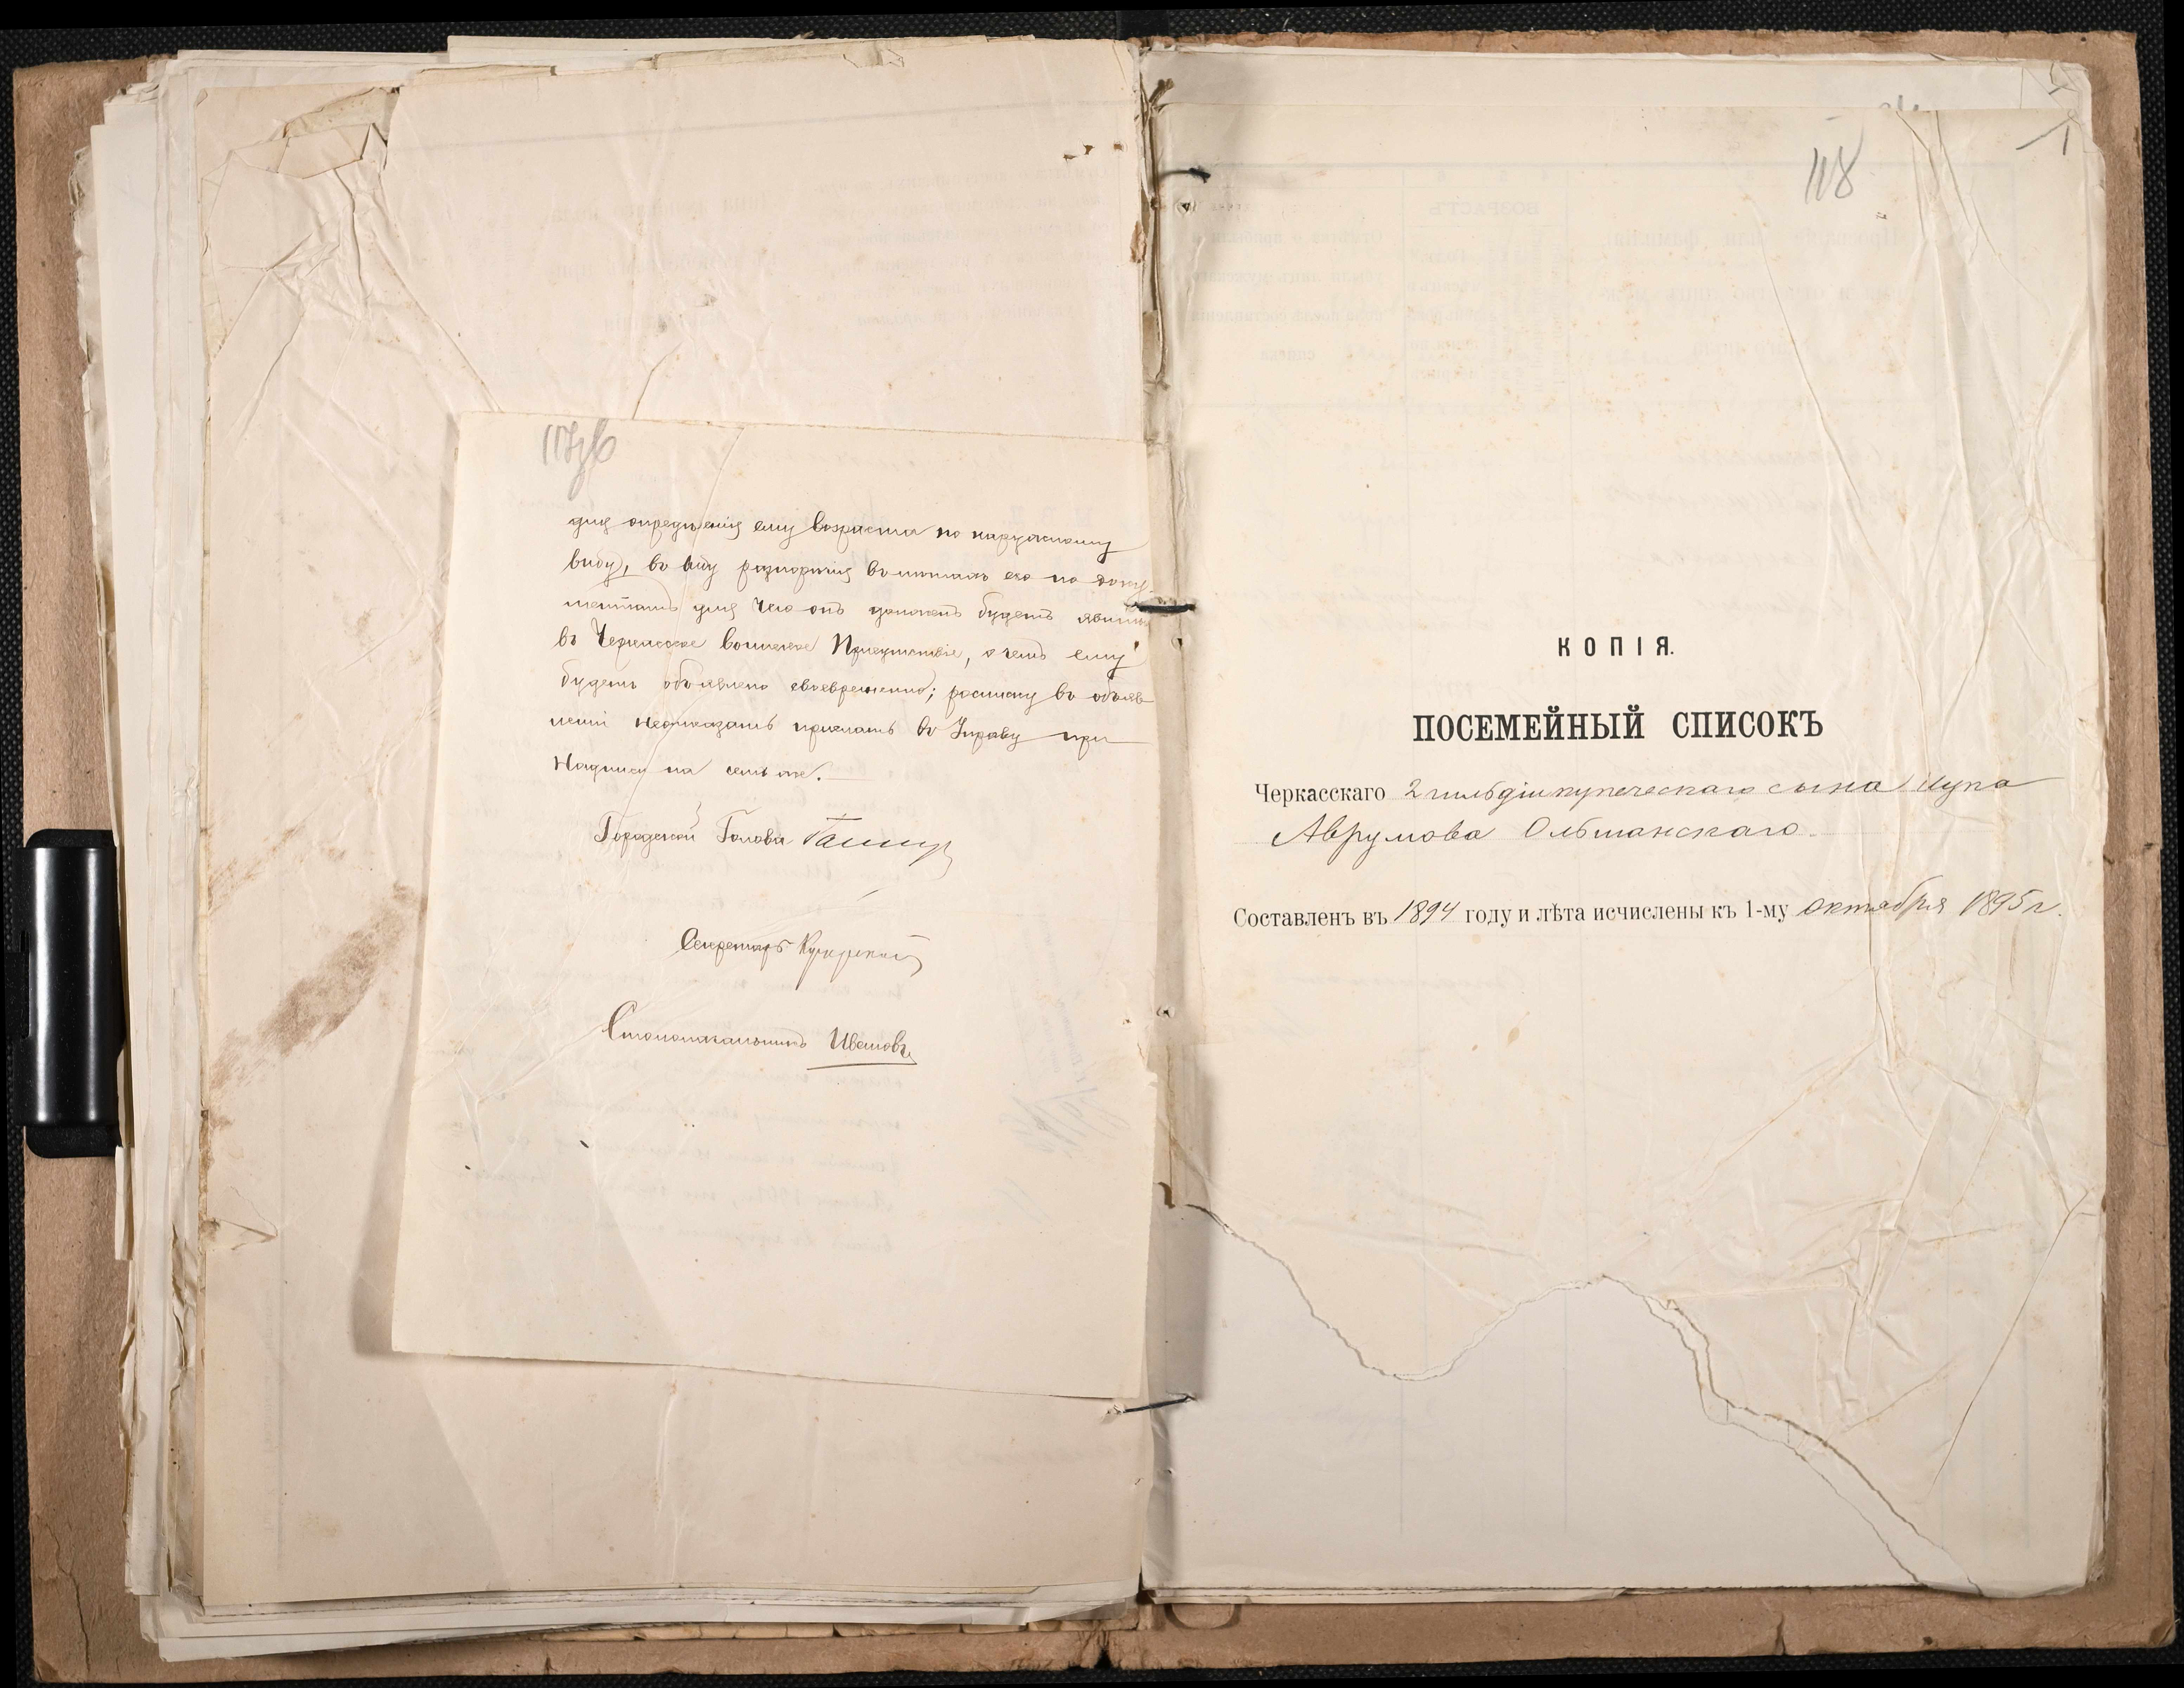 117об
для определенія ему возраста по наружному
виду, въ виду разнорѣчія въ лѣтахъ его по доку-
ментамъ для чего онъ долженъ будетъ явиться
въ Черкасское воинское Присутствіе, о чемъ ему
будетъ объявлено своевременно; росписку въ объяв-
леніи неотказать прислать въ Управу при
надписи на семъ же.
Городской Голова
Секретарь
Столоначальникъ Ивановъ
118
КОПІЯ.
ПОСЕМЕЙНЫЙ СПИСОКЪ
Черкасскаго 2 гильдіи купеческаго сына
Аврумова Ольшанскаго.
Составленъ въ 1894 году и лѣта исчислены къ 1-му октября 1895 г.